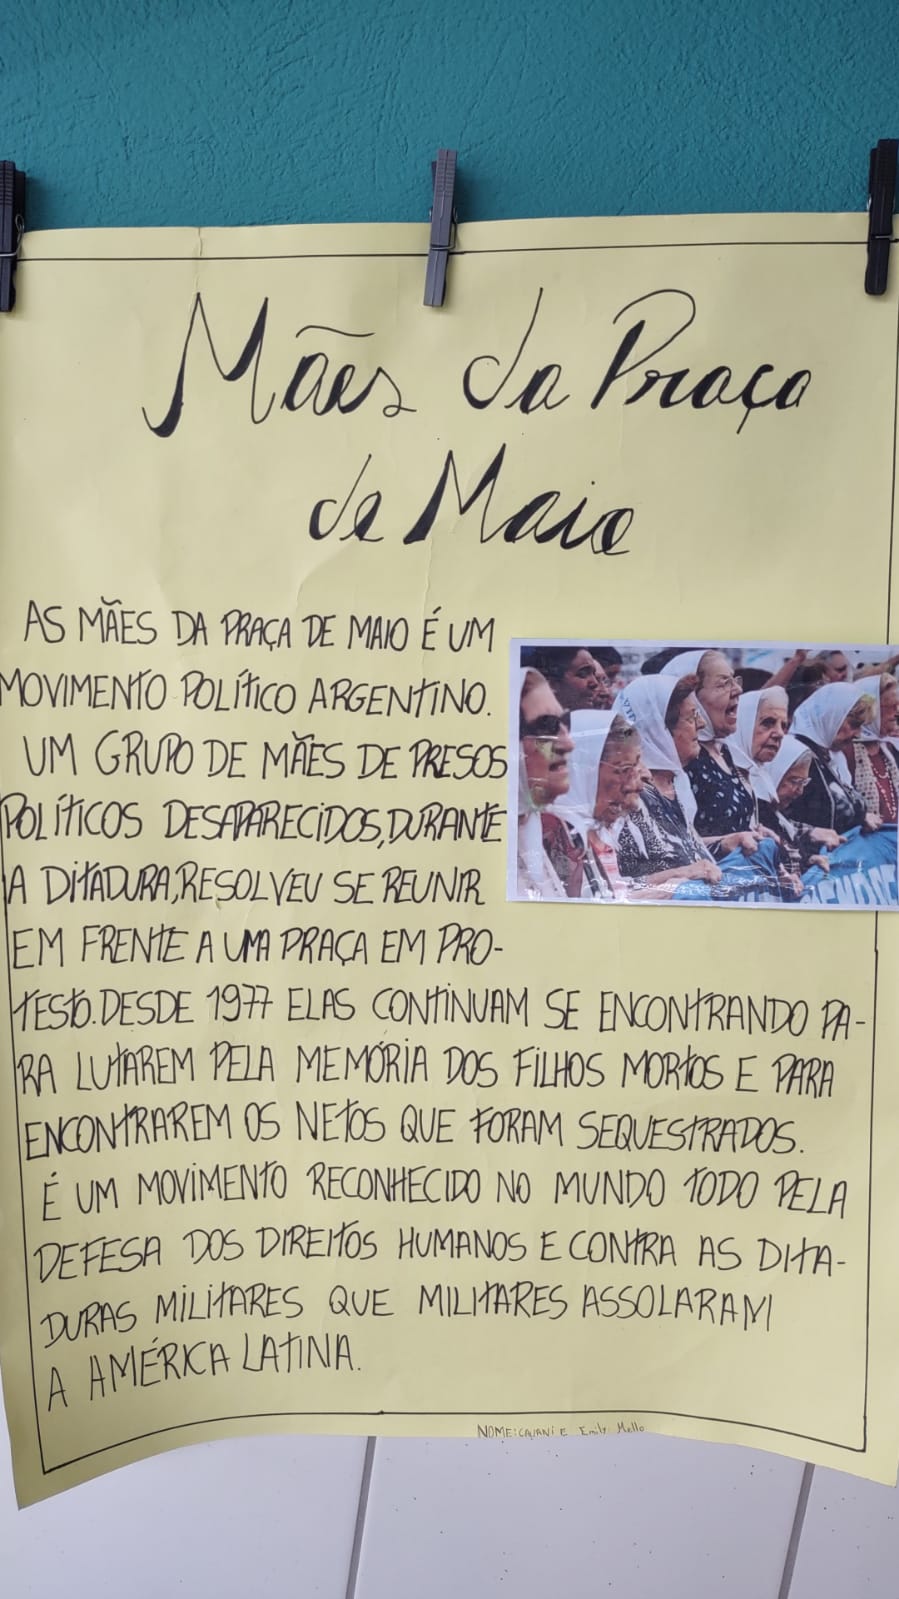 Mães da Praça
de Maio
AS MÃES DA PRAÇA DE MAIO É UM
MOVIMENTO POLÍTICO ARGENTINO.
UM GRUPO DE MÃES DE PRESOS
POLÍTICOS DESAPARECIDOS, DURANTE
A DITADURA, RESOLVEU SE REUNIR
EM FRENTE A UMA PRAÇA EM PRO-
TESTO. DESDE 1977 ELAS CONTINUAM SE ENCONTRANDO PA-
RA LUTAREM PELA MEMÓRIA DOS FILHOS MORTOS E PARA
ENCONTRAREM OS NETOS QUE FORAM SEQUESTRADOS.
É UM MOVIMENTO RECONHECIDO NO MUNDO TODO PELA
DEFESA DOS DIREITOS HUMANOS E CONTRA AS DITA-
DURAS MILITARES QUE MILITARES ASSOLARAM
A AMÉRICA LATINA.
NOME: E Emily Mello